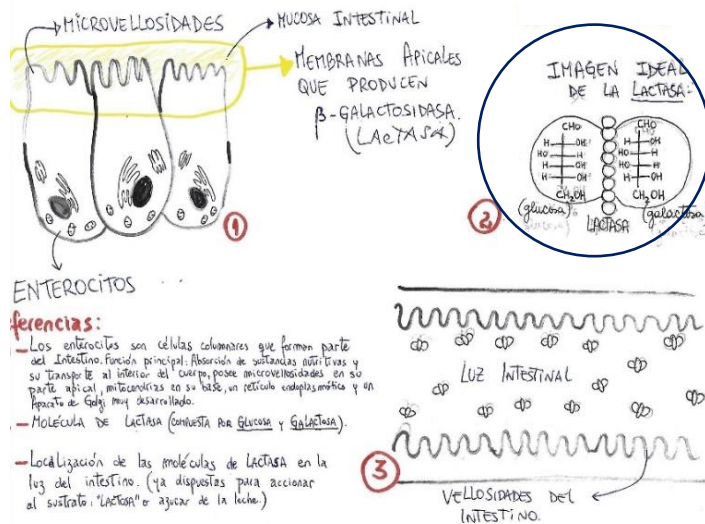 MICROVELLOSIDADES
MUCOSA INTESTINAL
MEMBRANAS APICALES
QUE PRODUCEN
β-GALACTOSIDASA.
(LACTASA)
1
ENTEROCITOS
IMAGEN IDEAL
DE LA LACTASA:
CHO CHO
H OH H OH
HO H HO H
H OH HO H
H OH H OH
CH2OH CH2OH
(glucosa) (galactosa)
LACTASA
2
ferencias:
— Los enterocitos son células columnares que forman parte
del Intestino. Función principal: Absorción de sustancias nutritivas y
su transporte al interior del cuerpo, posee microvellosidades en su
parte apical, mitocondrias en su base, un retículo endoplasmático y un
Aparato de Golgi muy desarrollado.
— MOLÉCULA DE LACTASA (COMPUESTA POR GLUCOSA Y GALACTOSA).
— Localización de las moléculas de LACTASA en la
luz del intestino. (ya dispuestas para accionar
al sustrato: "LACTOSA" o azucar de la leche.)
LUZ INTESTINAL
3
VELLOSIDADES DEL
INTESTINO.